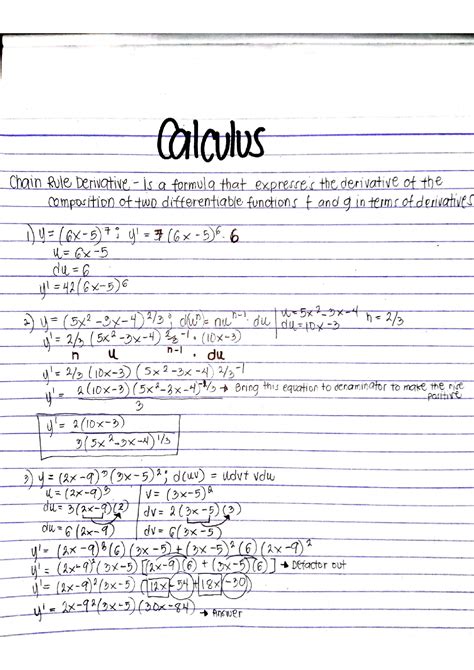 Calculus
Chain Rule Derivative - is a formula that expresses the derivative of the
composition of two differentiable functions f and g in terms of derivatives
1) y = (6x-5)⁷ ; y' = 7(6x-5)⁶ · 6
u = 6x-5
du = 6
y' = 42(6x-5)⁶
2) y = (5x²-3x-4)^2/3 ; d(uⁿ) = nu^n-1 · du | u = 5x²-3x-4 n = 2/3
du = 10x-3
y' = 2/3 (5x²-3x-4)^2/3-1 · (10x-3)
n u n-1 · du
y' = 2/3 (10x-3) (5x²-3x-4)^2/3-1
y' = 2(10x-3)(5x²-3x-4)^-1/3 → Bring this equation to denominator to make the
3 positive
y' = 2(10x-3)
3(5x²-3x-4)^1/3
3) y = (2x-9)³(3x-5)² ; d(uv) = udv+vdu
u = (2x-9)³ | v = (3x-5)²
du = 3(2x-9)(2) | dv = 2(3x-5)(3)
du = 6(2x-9) | dv = 6(3x-5)
y' = (2x-9)³(6)(3x-5) + (3x-5)²(6)(2x-9)²
y' = (2x-9)²(3x-5)[(2x-9)(6) + (3x-5)(6)] → Defactor out
y' = (2x-9)²(3x-5)(12x-54+18x-30)
y' = 2x-9²(3x-5)(30x-84) → Answer